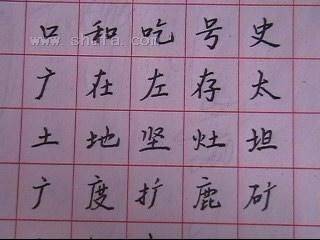 口和吃号史
广在左存太
土地坚灶坦
广度扩鹿矿